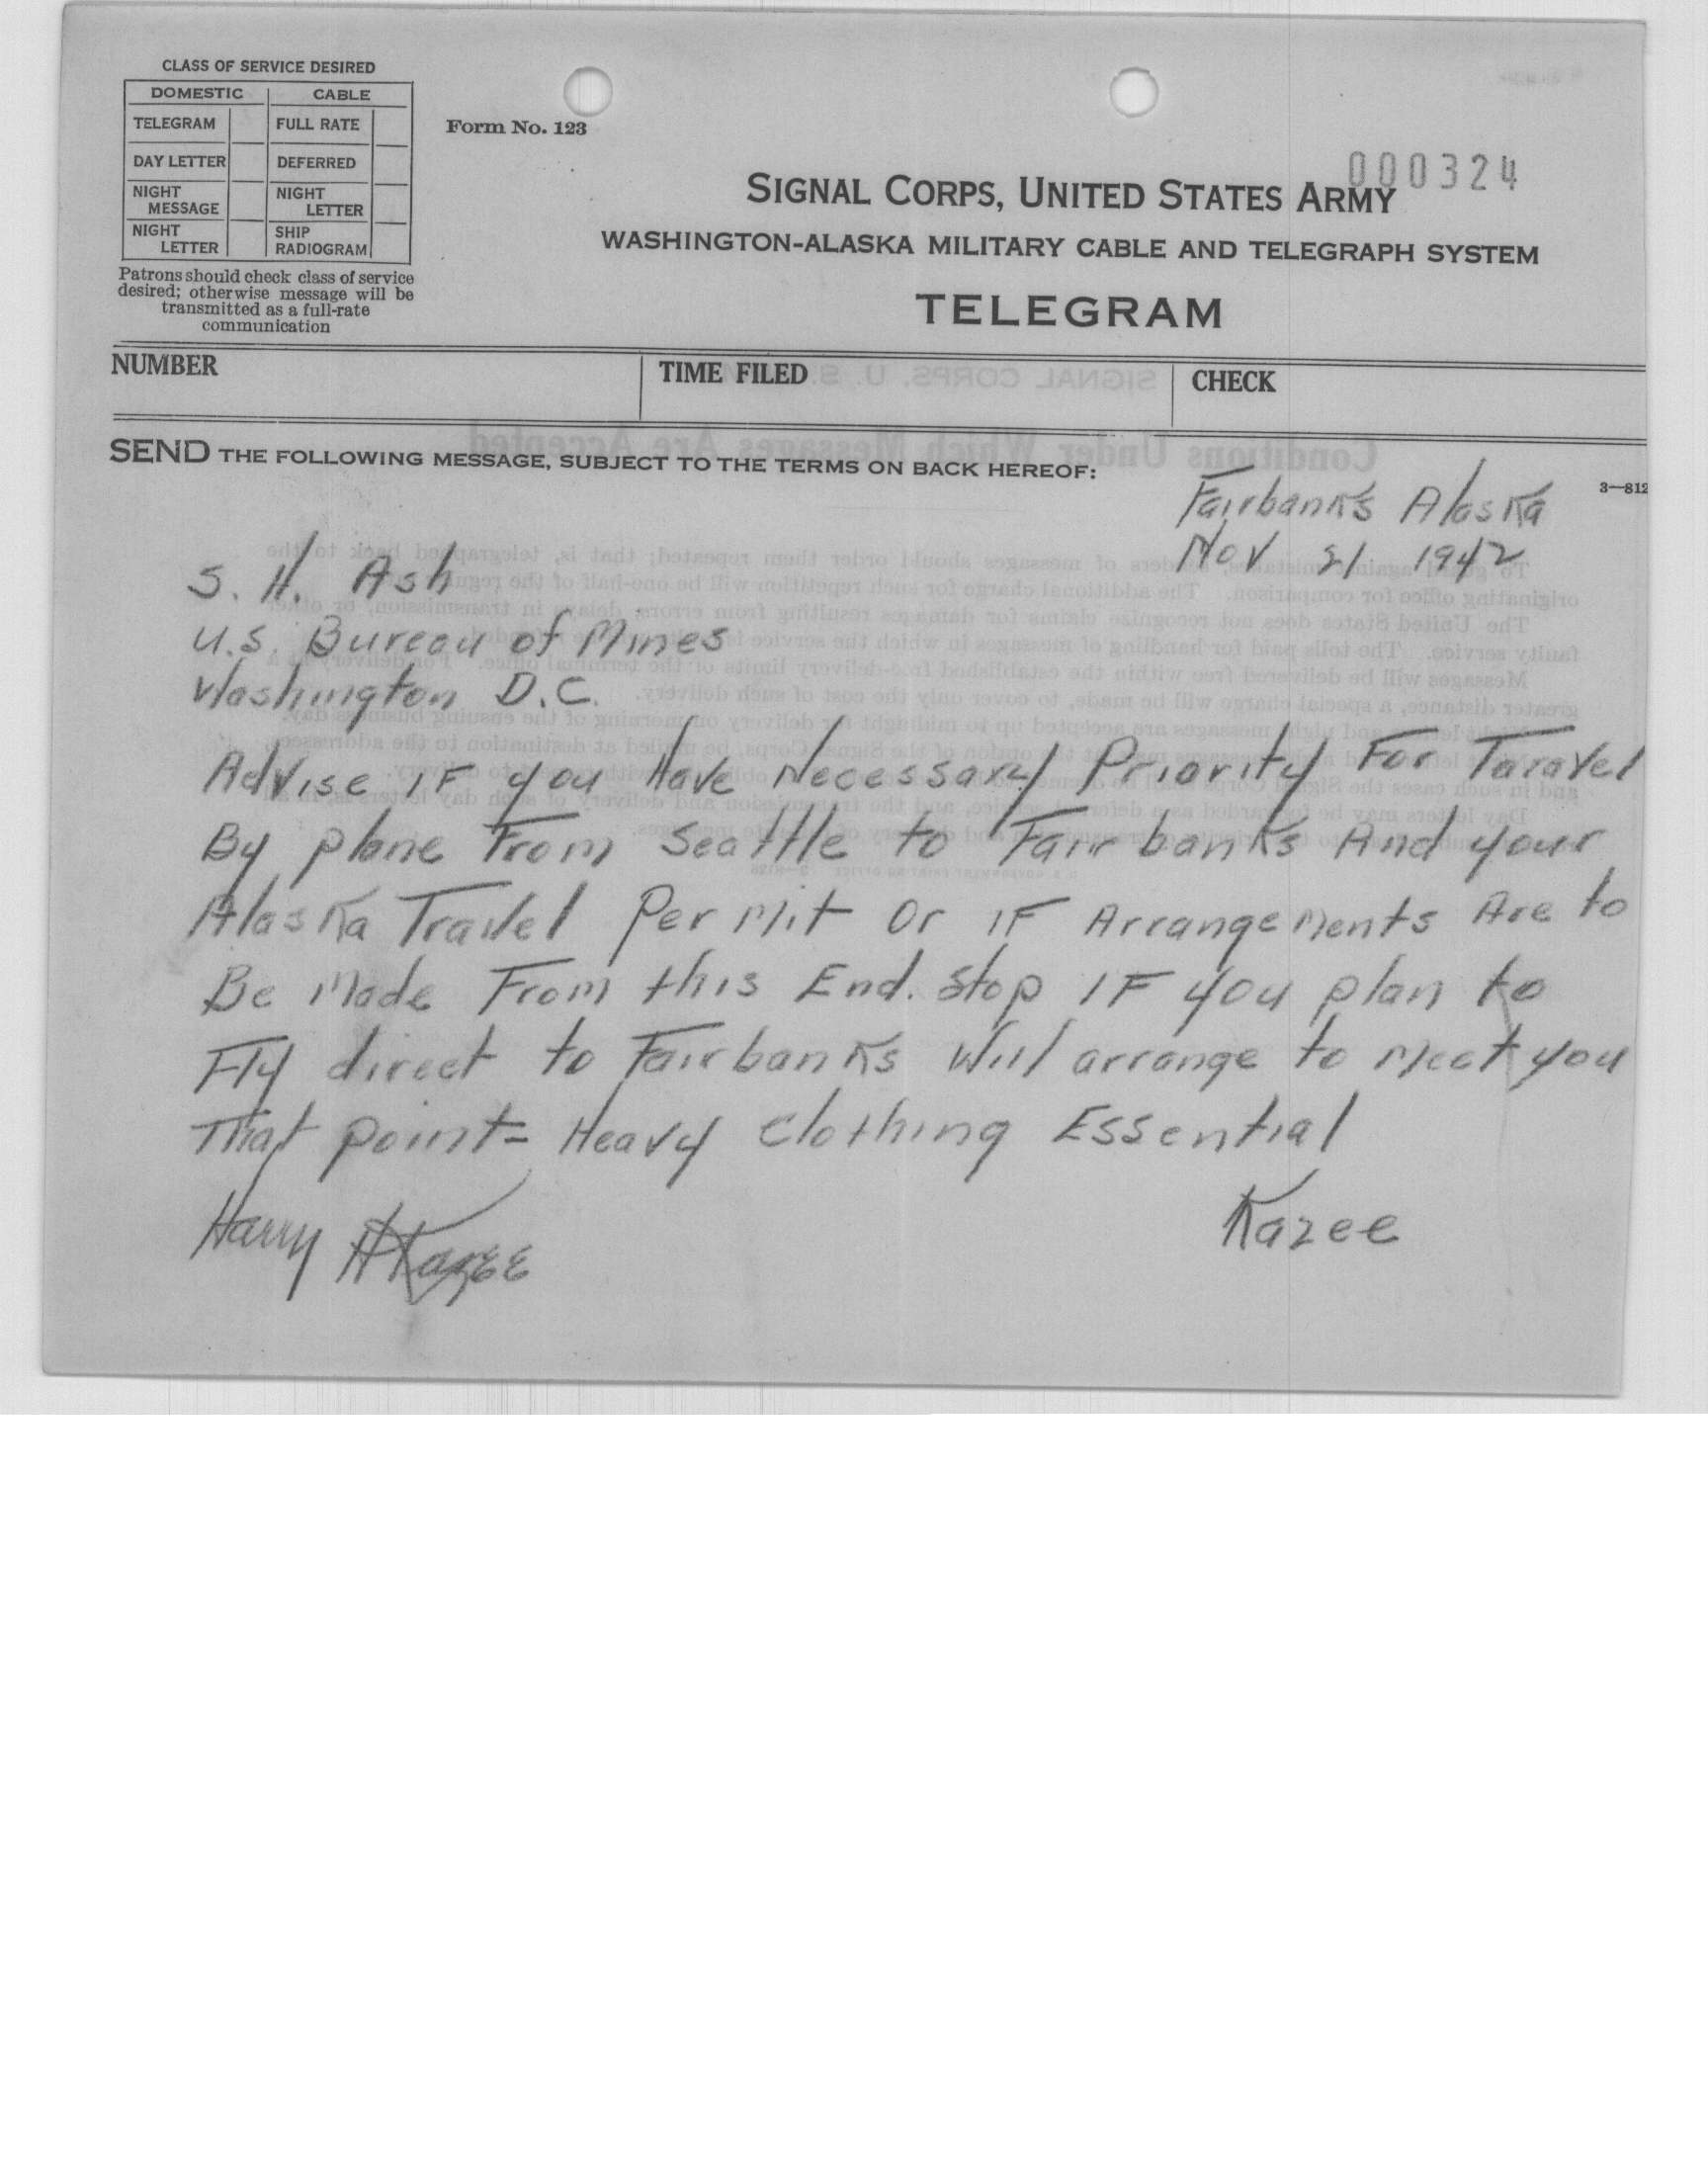 CLASS OF SERVICE DESIRED
DOMESTIC CABLE
TELEGRAM FULL RATE
DAY LETTER DEFERRED
NIGHT MESSAGE NIGHT LETTER
NIGHT LETTER SHIP RADIOGRAM
Patrons should check class of service
desired; otherwise message will be
transmitted as a full-rate
communication
Form No. 123
000324
SIGNAL CORPS, UNITED STATES ARMY
WASHINGTON-ALASKA MILITARY CABLE AND TELEGRAPH SYSTEM
TELEGRAM
NUMBER TIME FILED CHECK
SEND THE FOLLOWING MESSAGE, SUBJECT TO THE TERMS ON BACK HEREOF:
3—812
Fairbanks Alaska
Nov 21 1942
S. H. Ash
U.S. Bureau of Mines
Washington D.C.
Advise IF you Have Necessary Priority For Taravel
By plane From Seattle to Fairbanks And your
Alaska Travel Permit Or IF Arrangements Are to
Be Made From this End. Stop IF you plan to
Fly direct to Fairbanks Will arrange to Meet you
That point- Heavy Clothing Essential
Kazee
Harry H Kazee